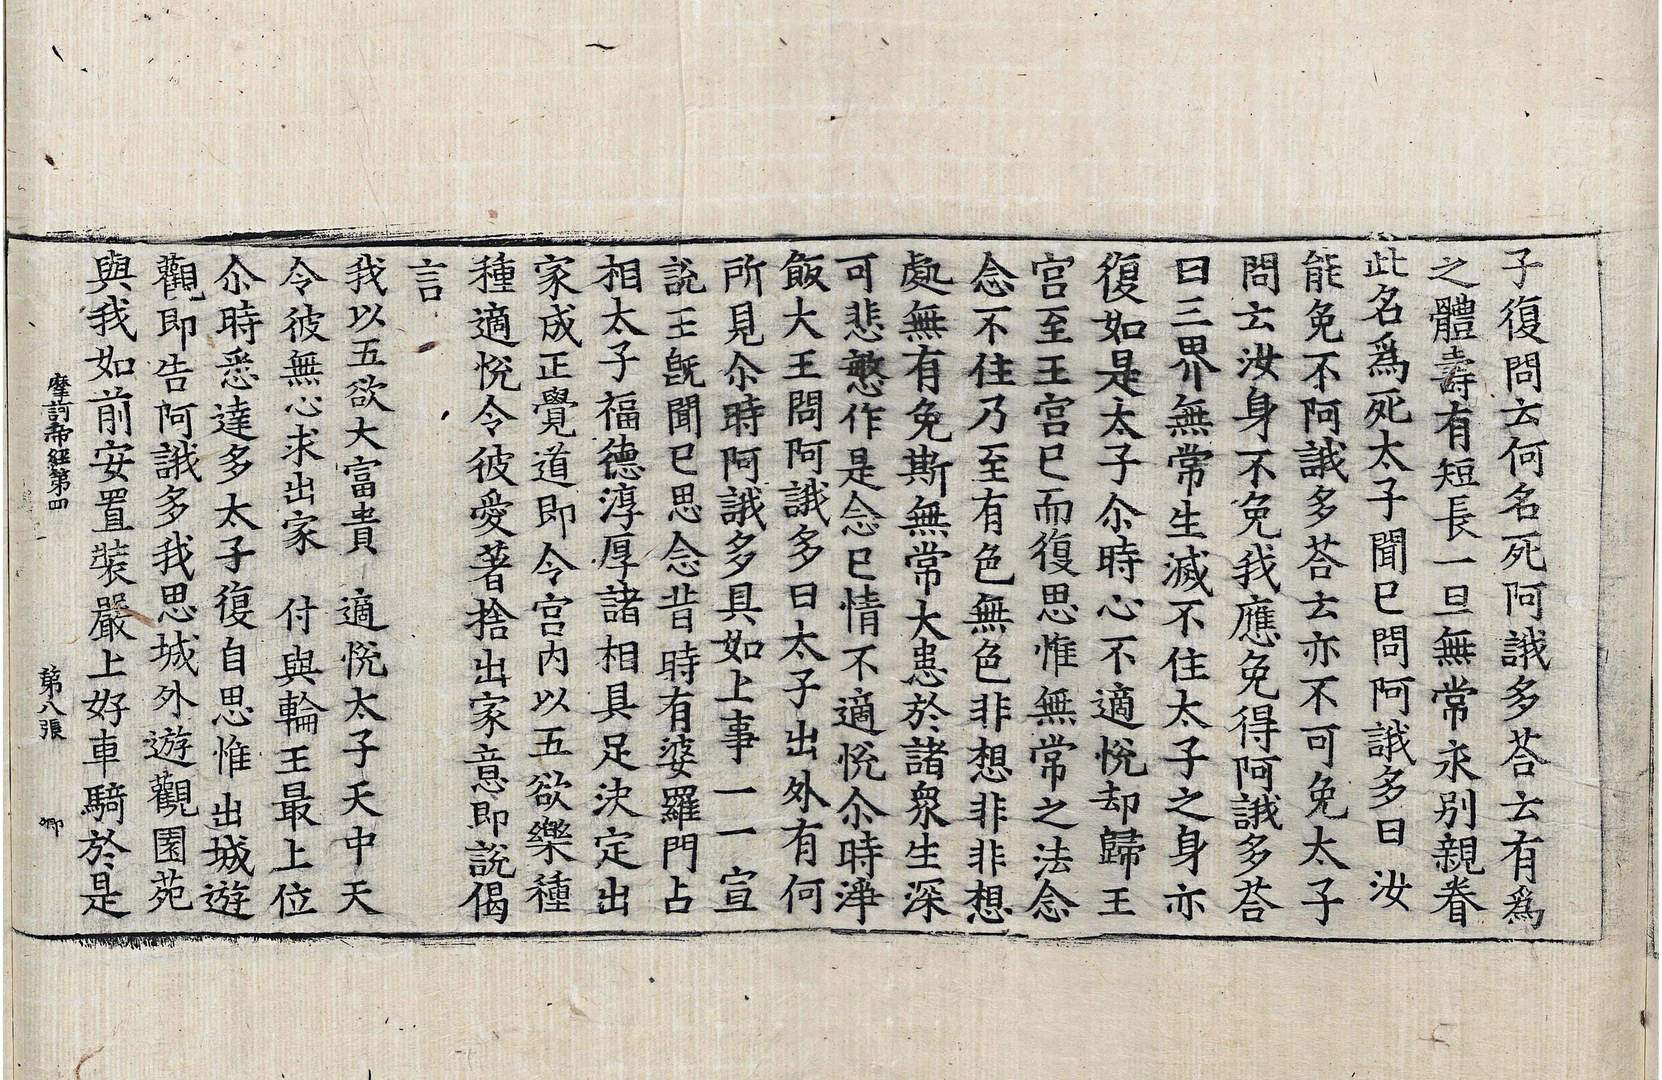 子復問云何名死阿誐多荅云有爲
之體壽有短長一旦無常永別親眷
此名爲死太子聞已問阿誐多曰汝
能免不阿誐多荅云亦不可免太子
問云汝身不免我應免得阿誐多荅
曰三界無常生滅不住太子之身亦
復如是太子尒時心不適悅却歸王
宮至王宮已而復思惟無常之法念
念不住乃至有色無色非想非非想
處無有免斯無常大患於諸衆生深
可悲愍作是念已情不適悅尒時淨
飯大王問阿誐多曰太子出外有何
所見尒時阿誐多具如上事一一宣
說王旣聞已思念昔時有婆羅門占
相太子福德淳厚諸相具足決定出
家成正覺道即令宮內以五欲樂種
種適悅令彼愛著捨出家意即說偈
言
我以五欲大富貴　適悅太子天中天
令彼無心求出家　付與輪王最上位
尒時悉達多太子復自思惟出城遊
觀即告阿誐多我思城外遊觀園苑
與我如前安置裝嚴上好車騎於是
摩訶帝經第四　第八張　卿